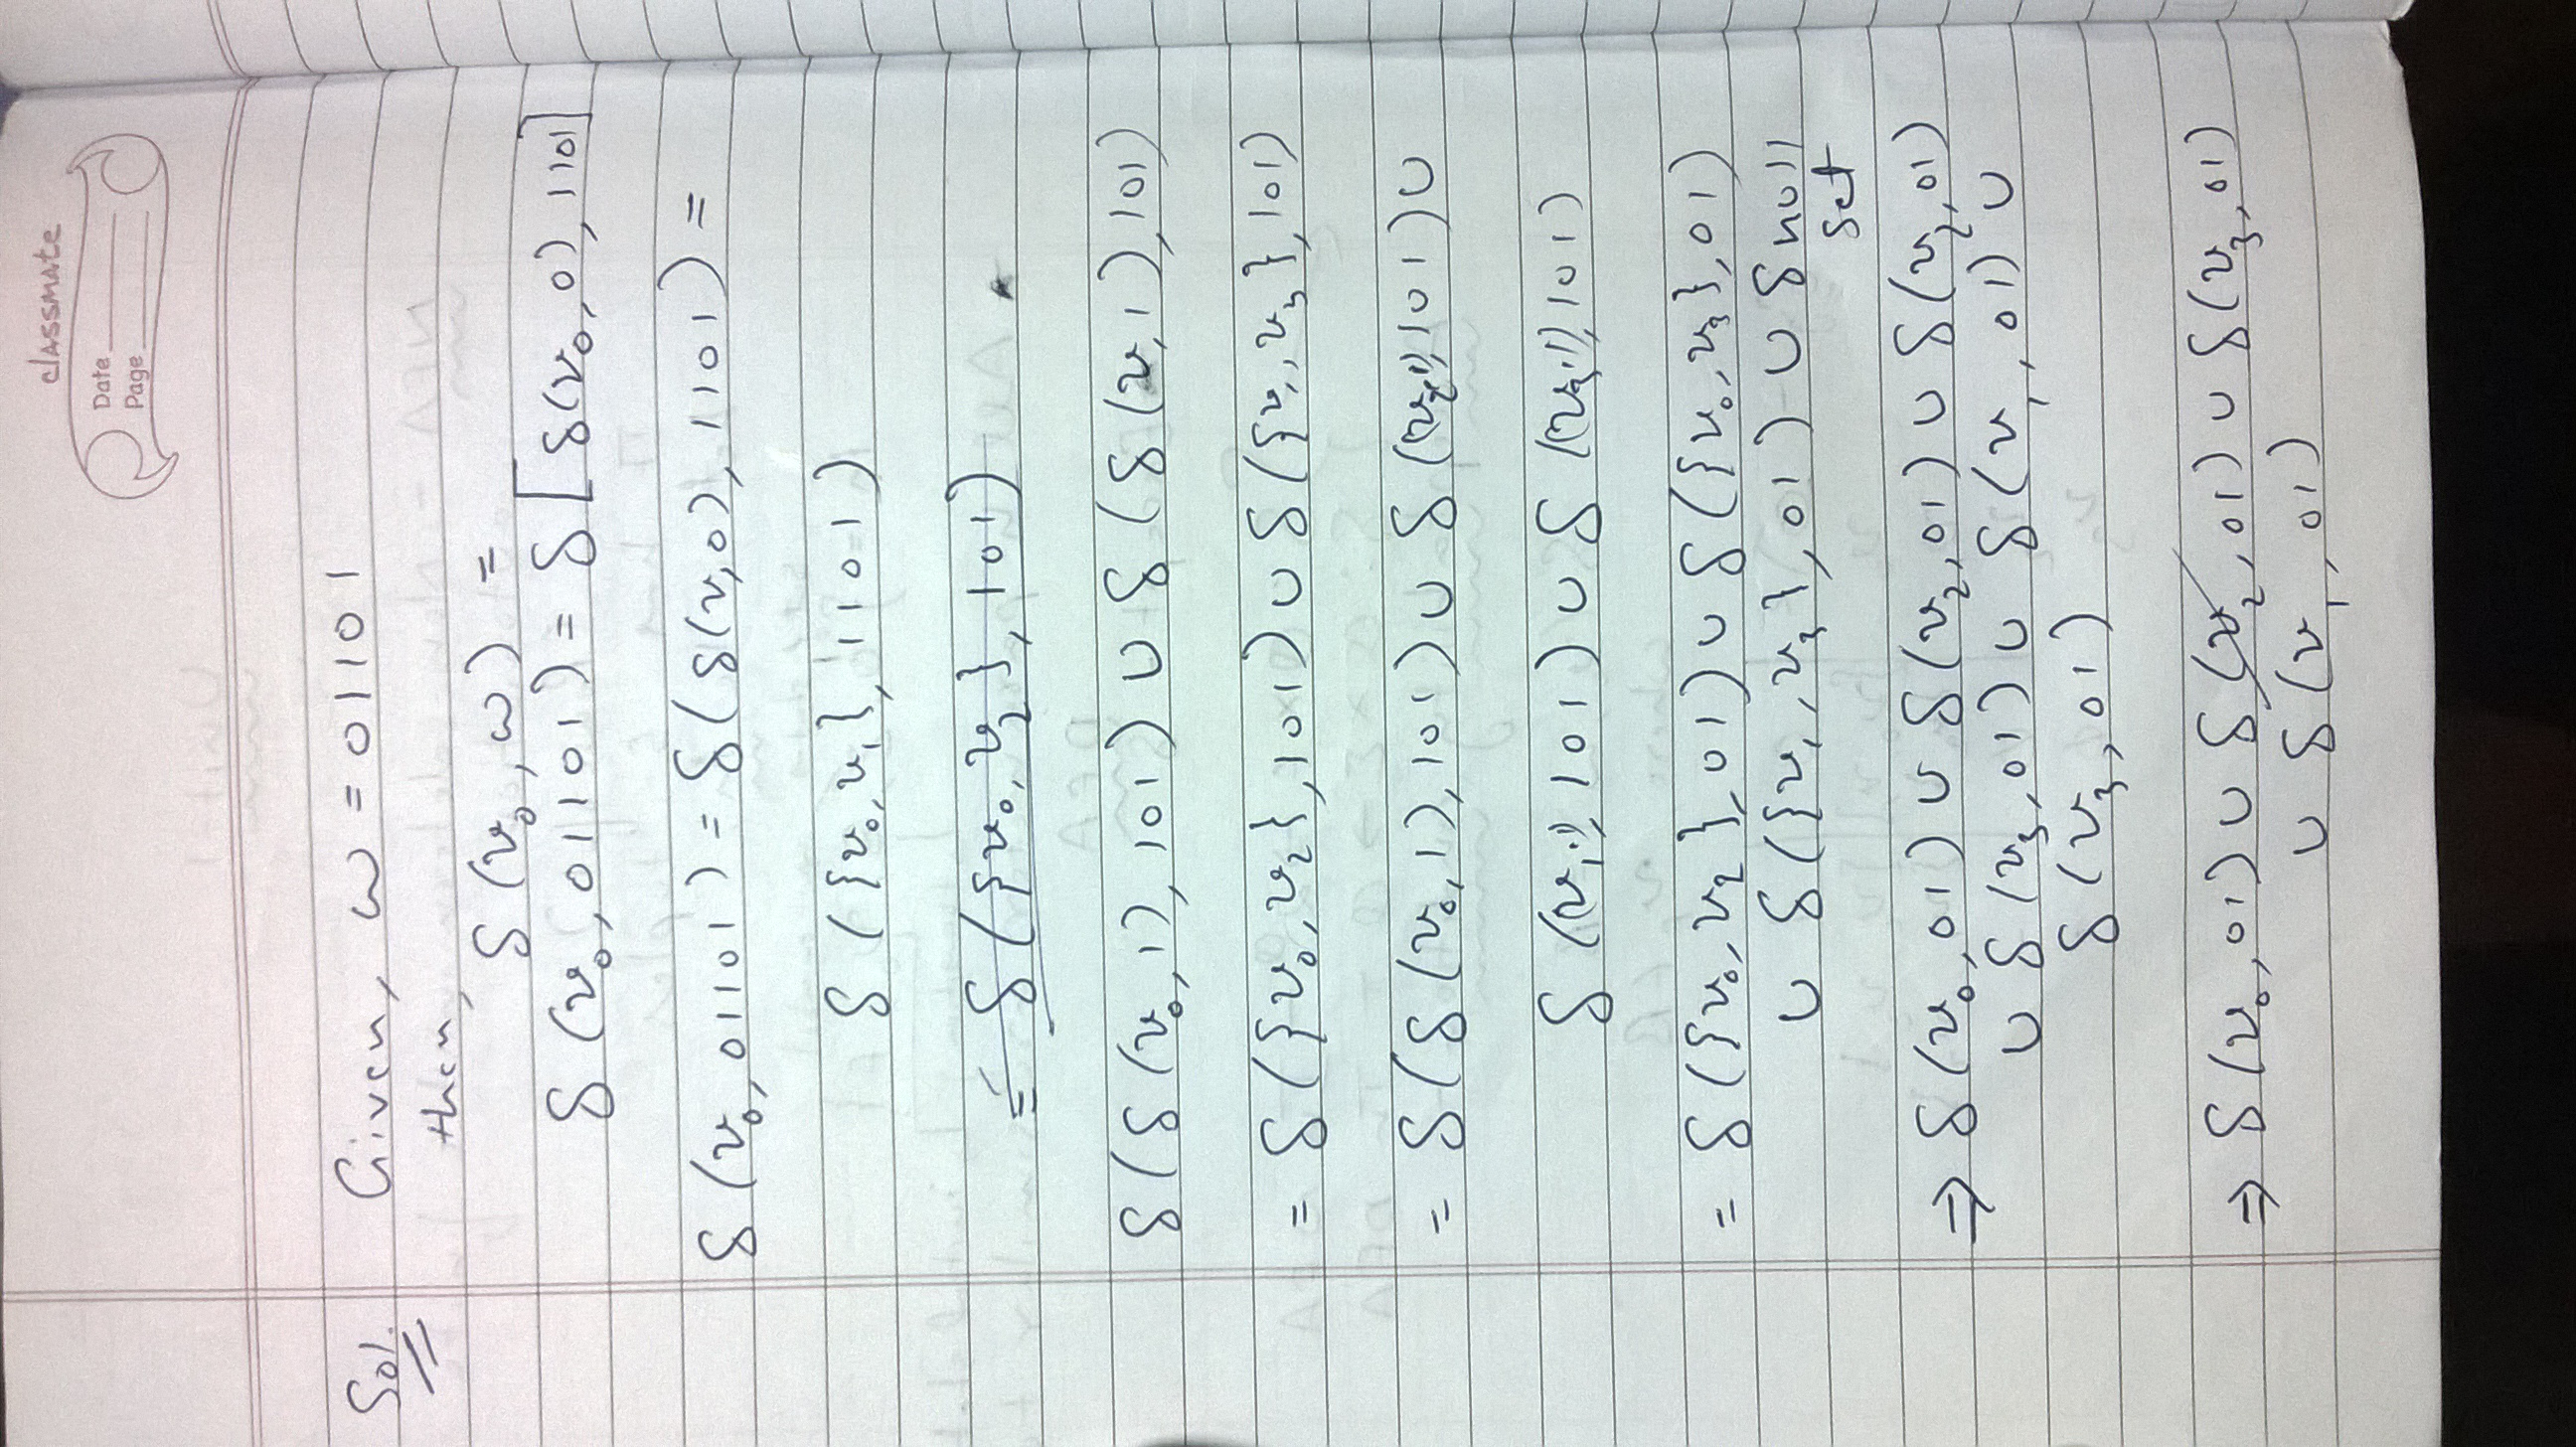 classmate
Date
Page
Sol. Given, ω = 01101
then,
δ (v₀, ω) =
δ (v₀, 01101) = δ [ δ(v₀, 0), 1101]
δ (v₀, 01101) = δ( δ(v,0), 1101) =
δ ({v₀, v₁}, 1101)
= δ({v₀, v₂}, 101)
δ(δ(v₀,1), 101) ∪ δ(δ(v,1), 101)
= δ({v₀, v₂}, 101) ∪ δ({v₁, v₃}, 101)
= δ(δ(v₀,1), 101) ∪ δ((v₂,1), 101) ∪
δ((v₁,1), 101) ∪ δ((v₃,1), 101)
= δ({v₀, v₂}, 01) ∪ δ({v₀, v₃}, 01)
∪ δ({v₁, v₃}, 01) ∪ δ null
set
⇒ δ(v₀, 01) ∪ δ(v₂, 01) ∪ δ(v₂, 01)
∪ δ(v₃, 01) ∪ δ(v₁, 01) ∪
δ(v₃, 01)
⇒ δ(v₀, 01) ∪ δ(v₂, 01) ∪ δ(v₃, 01)
∪ δ(v₁, 01)